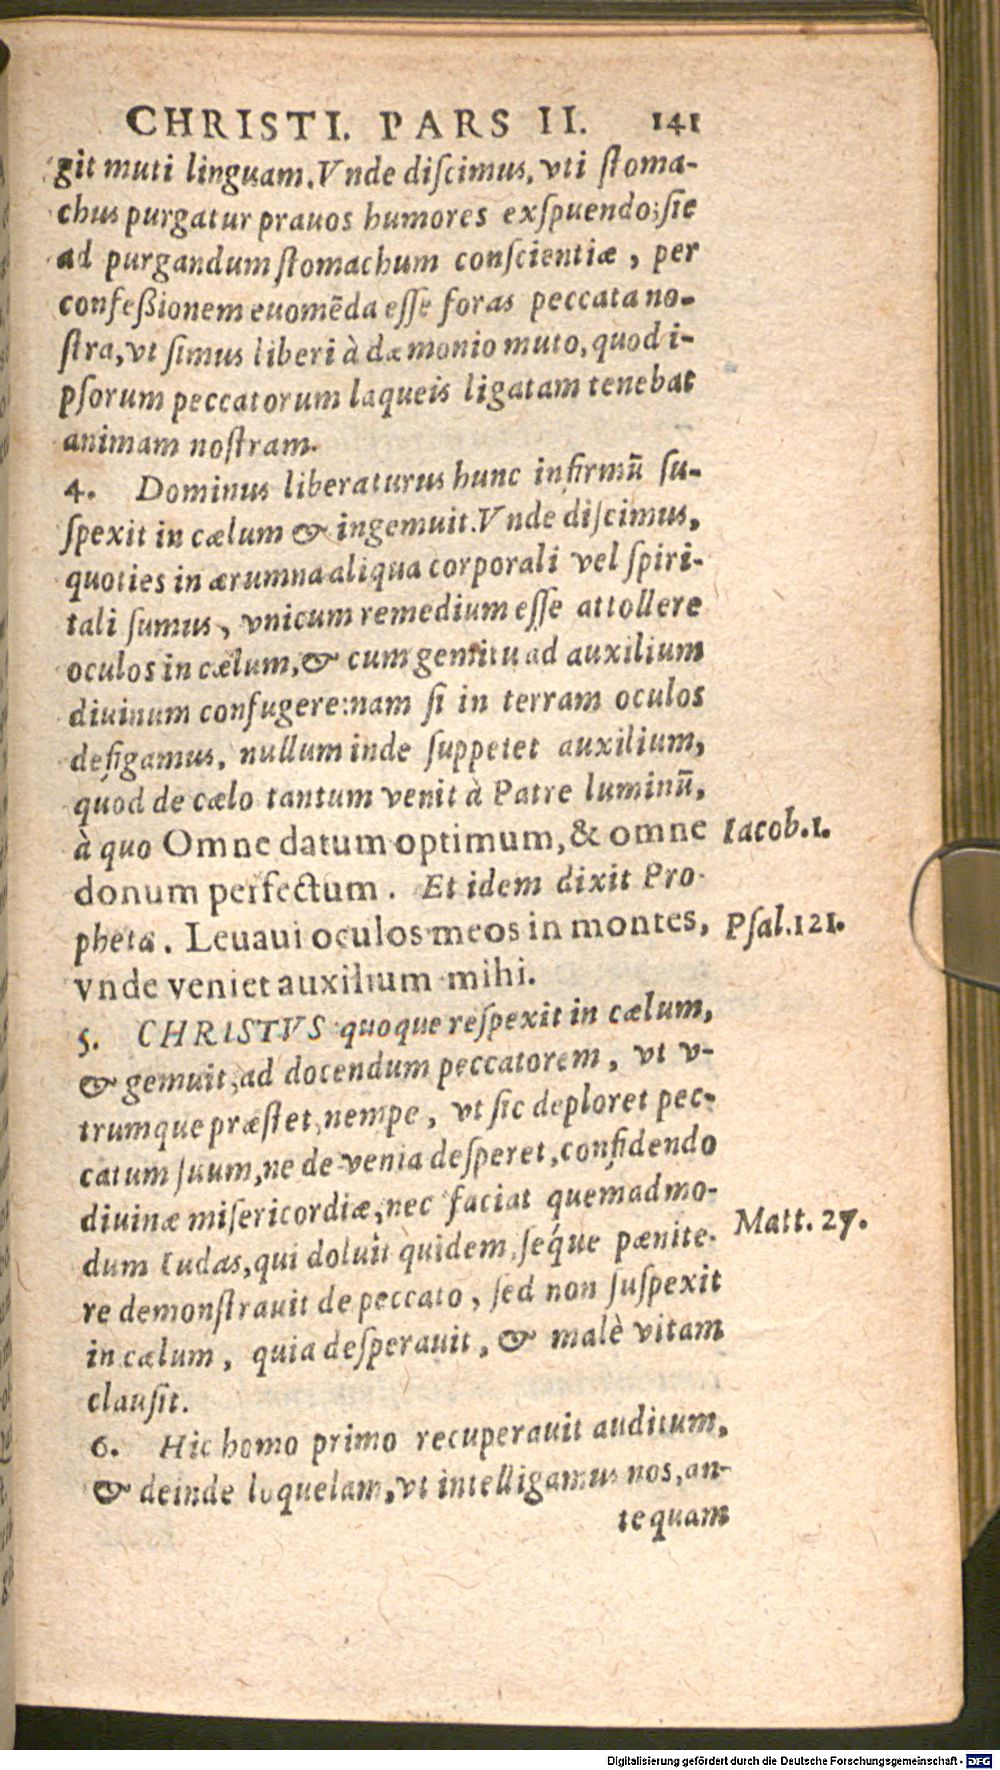 CHRISTI. PARS II. 141
git muti linguam. Vnde diſcimus, vti ſtoma-
chus purgatur prauos humores exſpuendo; ſic
ad purgandum ſtomachum conſcientiæ, per
confeßionem euomēda eſſe foras peccata no-
ſtra, vt ſimus liberi à dæmonio muto, quod i-
pſorum peccatorum laqueis ligatam tenebat
animam noſtram.
4. Dominus liberaturus hunc infirmū ſu-
ſpexit in cælum & ingemuit. Vnde diſcimus,
quoties in ærumna aliqua corporali vel ſpiri-
tali ſumus, vnicum remedium eſſe attollere
oculos in cælum, & cum gemitu ad auxilium
diuinum confugere: nam ſi in terram oculos
defigamus, nullum inde ſuppetet auxilium,
quod de cælo tantum venit à Patre luminū,
à quo Omne datum optimum, & omne Iacob. 1.
donum perfectum. Et idem dixit Pro-
pheta. Leuaui oculos meos in montes, Pſal. 121.
vnde veniet auxilium mihi.
5. CHRISTVS quoque reſpexit in cælum,
& gemuit, ad docendum peccatorem, vt v-
trumque præſtet, nempe, vt ſic deploret pec-
catum ſuum, ne de venia deſperet, confidendo
diuinæ miſericordiæ, nec faciat quemadmo-
dum Iudas, qui doluit quidem, ſeq́ue pænite- Matt. 27.
re demonſtrauit de peccato, ſed non ſuſpexit
in cælum, quia deſperauit, & malè vitam
clauſit.
6. Hic homo primo recuperauit auditum,
& deinde loquelam, vt intelligamus nos, an-
tequam
Digitalisierung gefördert durch die Deutsche Forschungsgemeinschaft - DFG